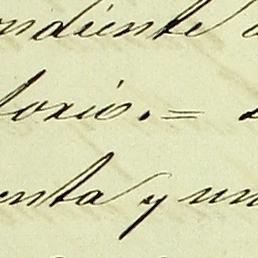 ndiente
torio.=
enta y un